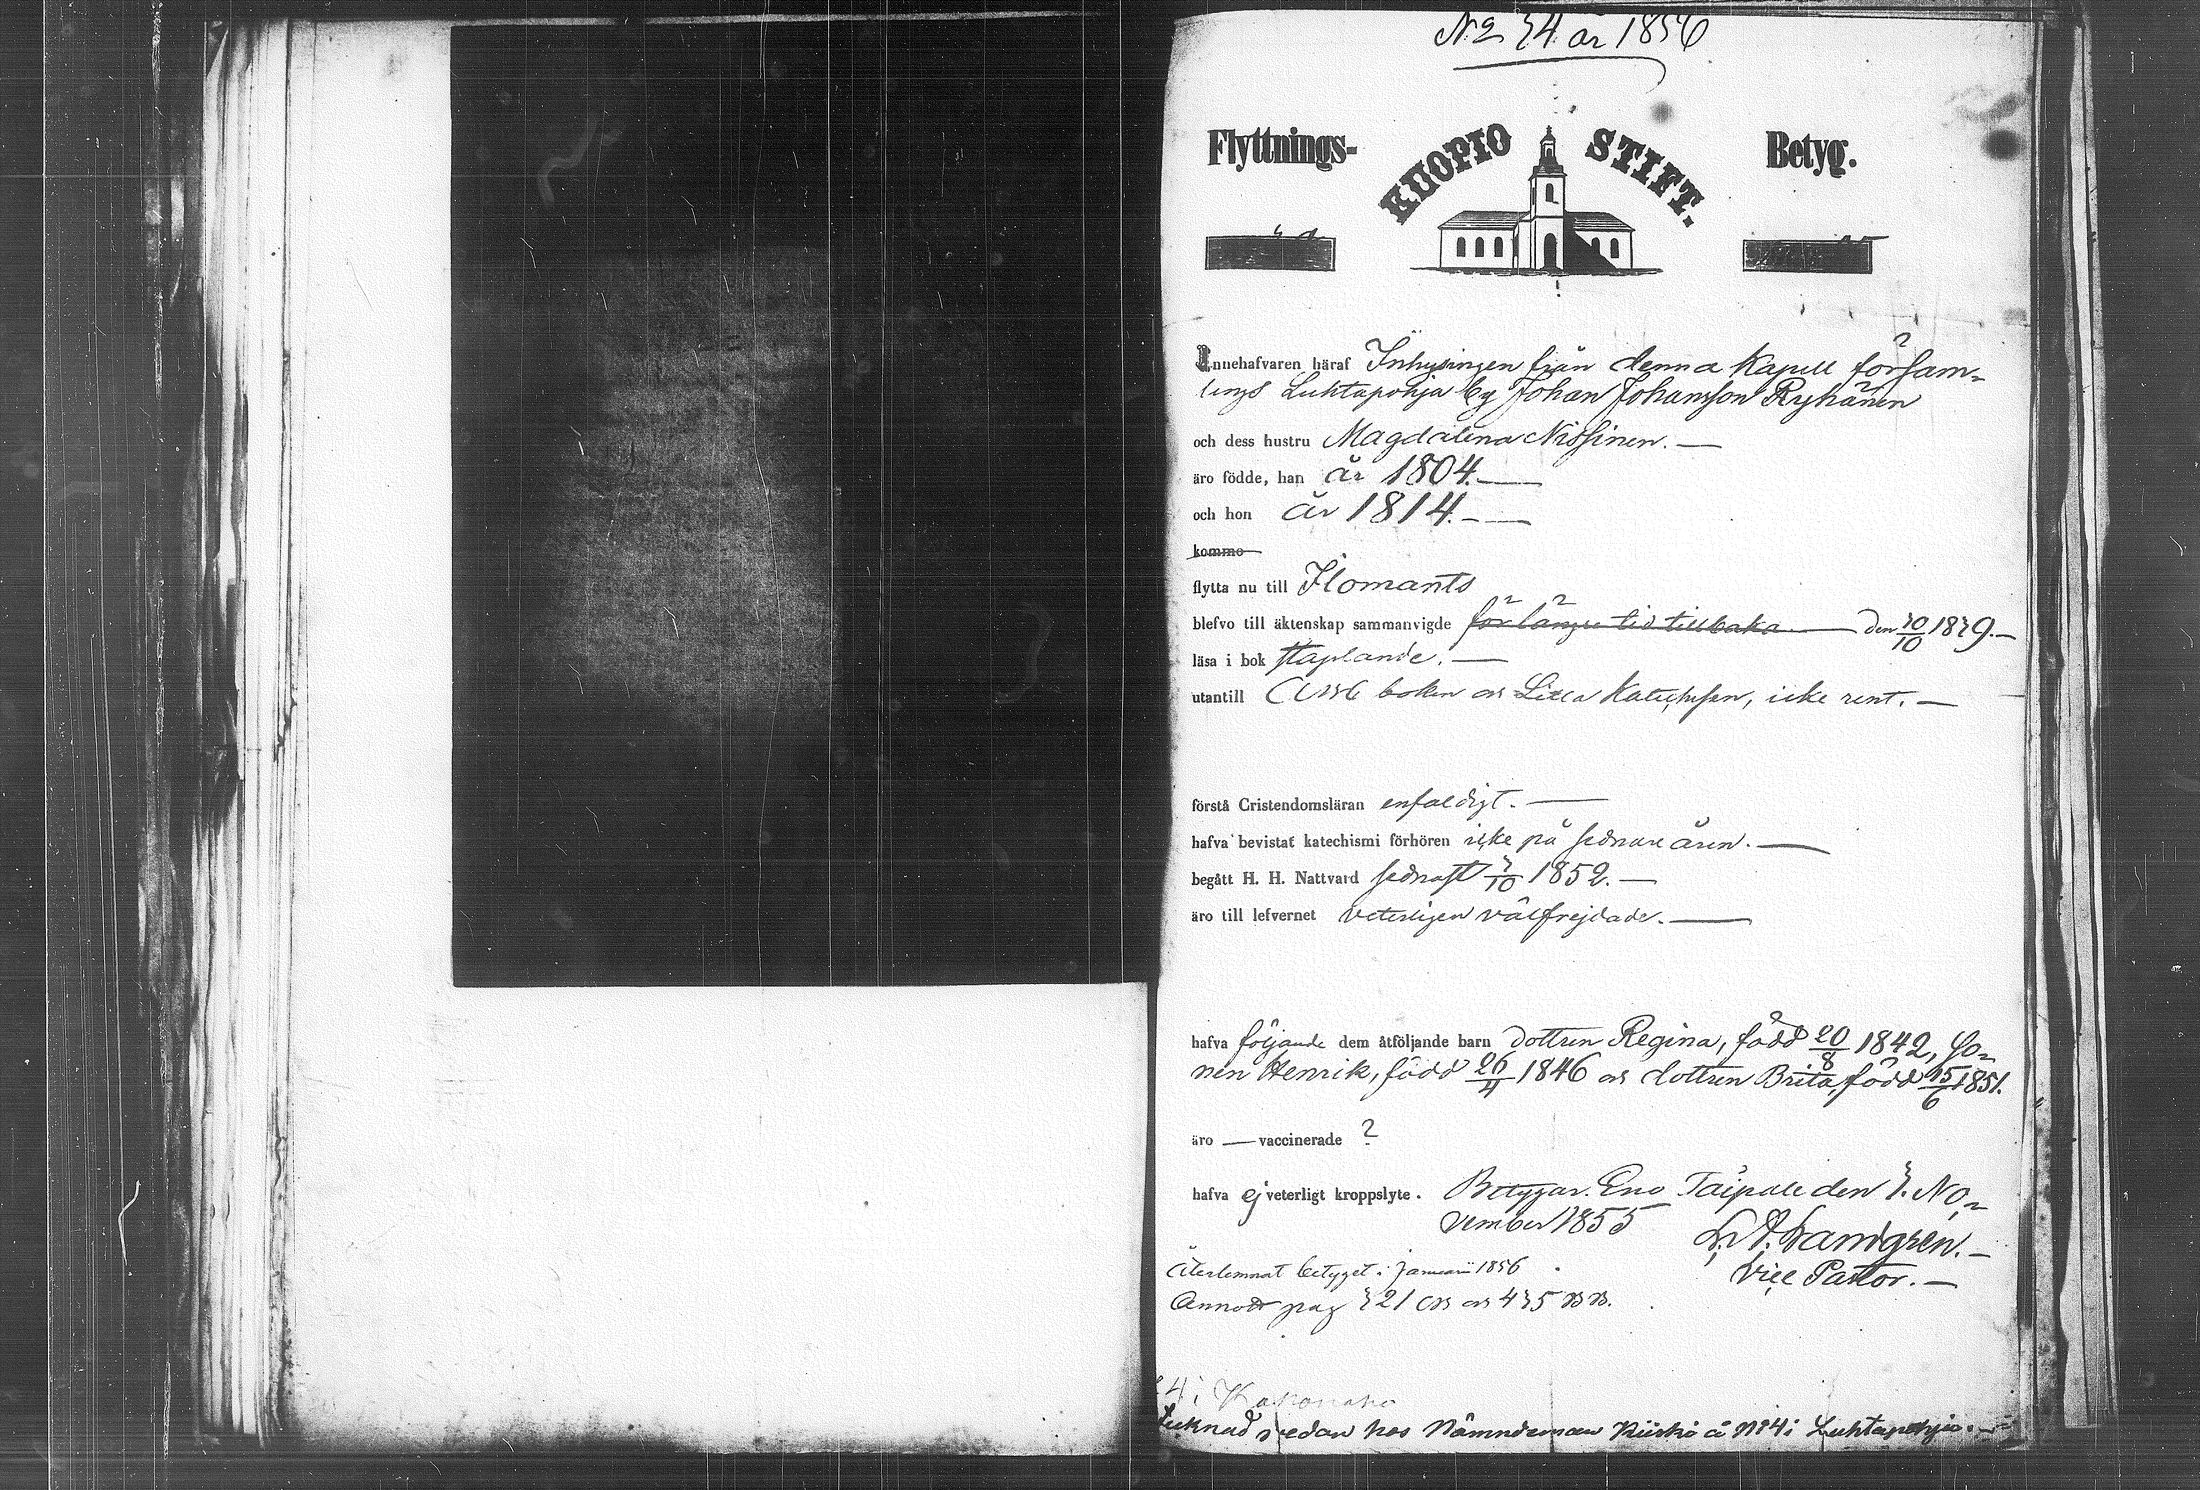 No 34 år 1856
Flyttnings- KUOPIO STIFT. Betyg.
Innehafvaren häraf Inhysingen från denna Kapell församlings
Luhtapohja by Johan Johansson Ryhänen
och dess hustru Magdalena Nissinen. —
äro födde, han år 1804. —
och hon år 1814. —
kommo
flytta nu till Ilomants
blefvo till äktenskap sammanvigde för längre tid tillbaka — den 30/10 1839. —
läsa i bok staplande. —
utantill ABC boken och Lilla Katechesen, icke rent. —
förstå Cristendomsläran enfaldigt. —
hafva bevistat katechismi förhören icke på sednare åren. —
begått H. H. Nattvard sednast 3/10 1852. —
äro till lefvernet veterligen välfrejdade. —
hafva följande dem åtföljande barn dottren Regina, född 20/8 1842, So-
nen Henrik, född 26/4 1846 och dottren Brita, född 15/6 1851.
äro — vaccinerade ?
hafva ej veterligt kroppslyte. Betygar. Eno Taipale den 3. No-
vember 1855 Landgren. —
Vice Pastor. —
Återlemnat betyget i januarii 1856
Annoter pag 321 och 435
4 i
sedan hos Nämndeman Kiiski å No 4 i Luhtapohja. —